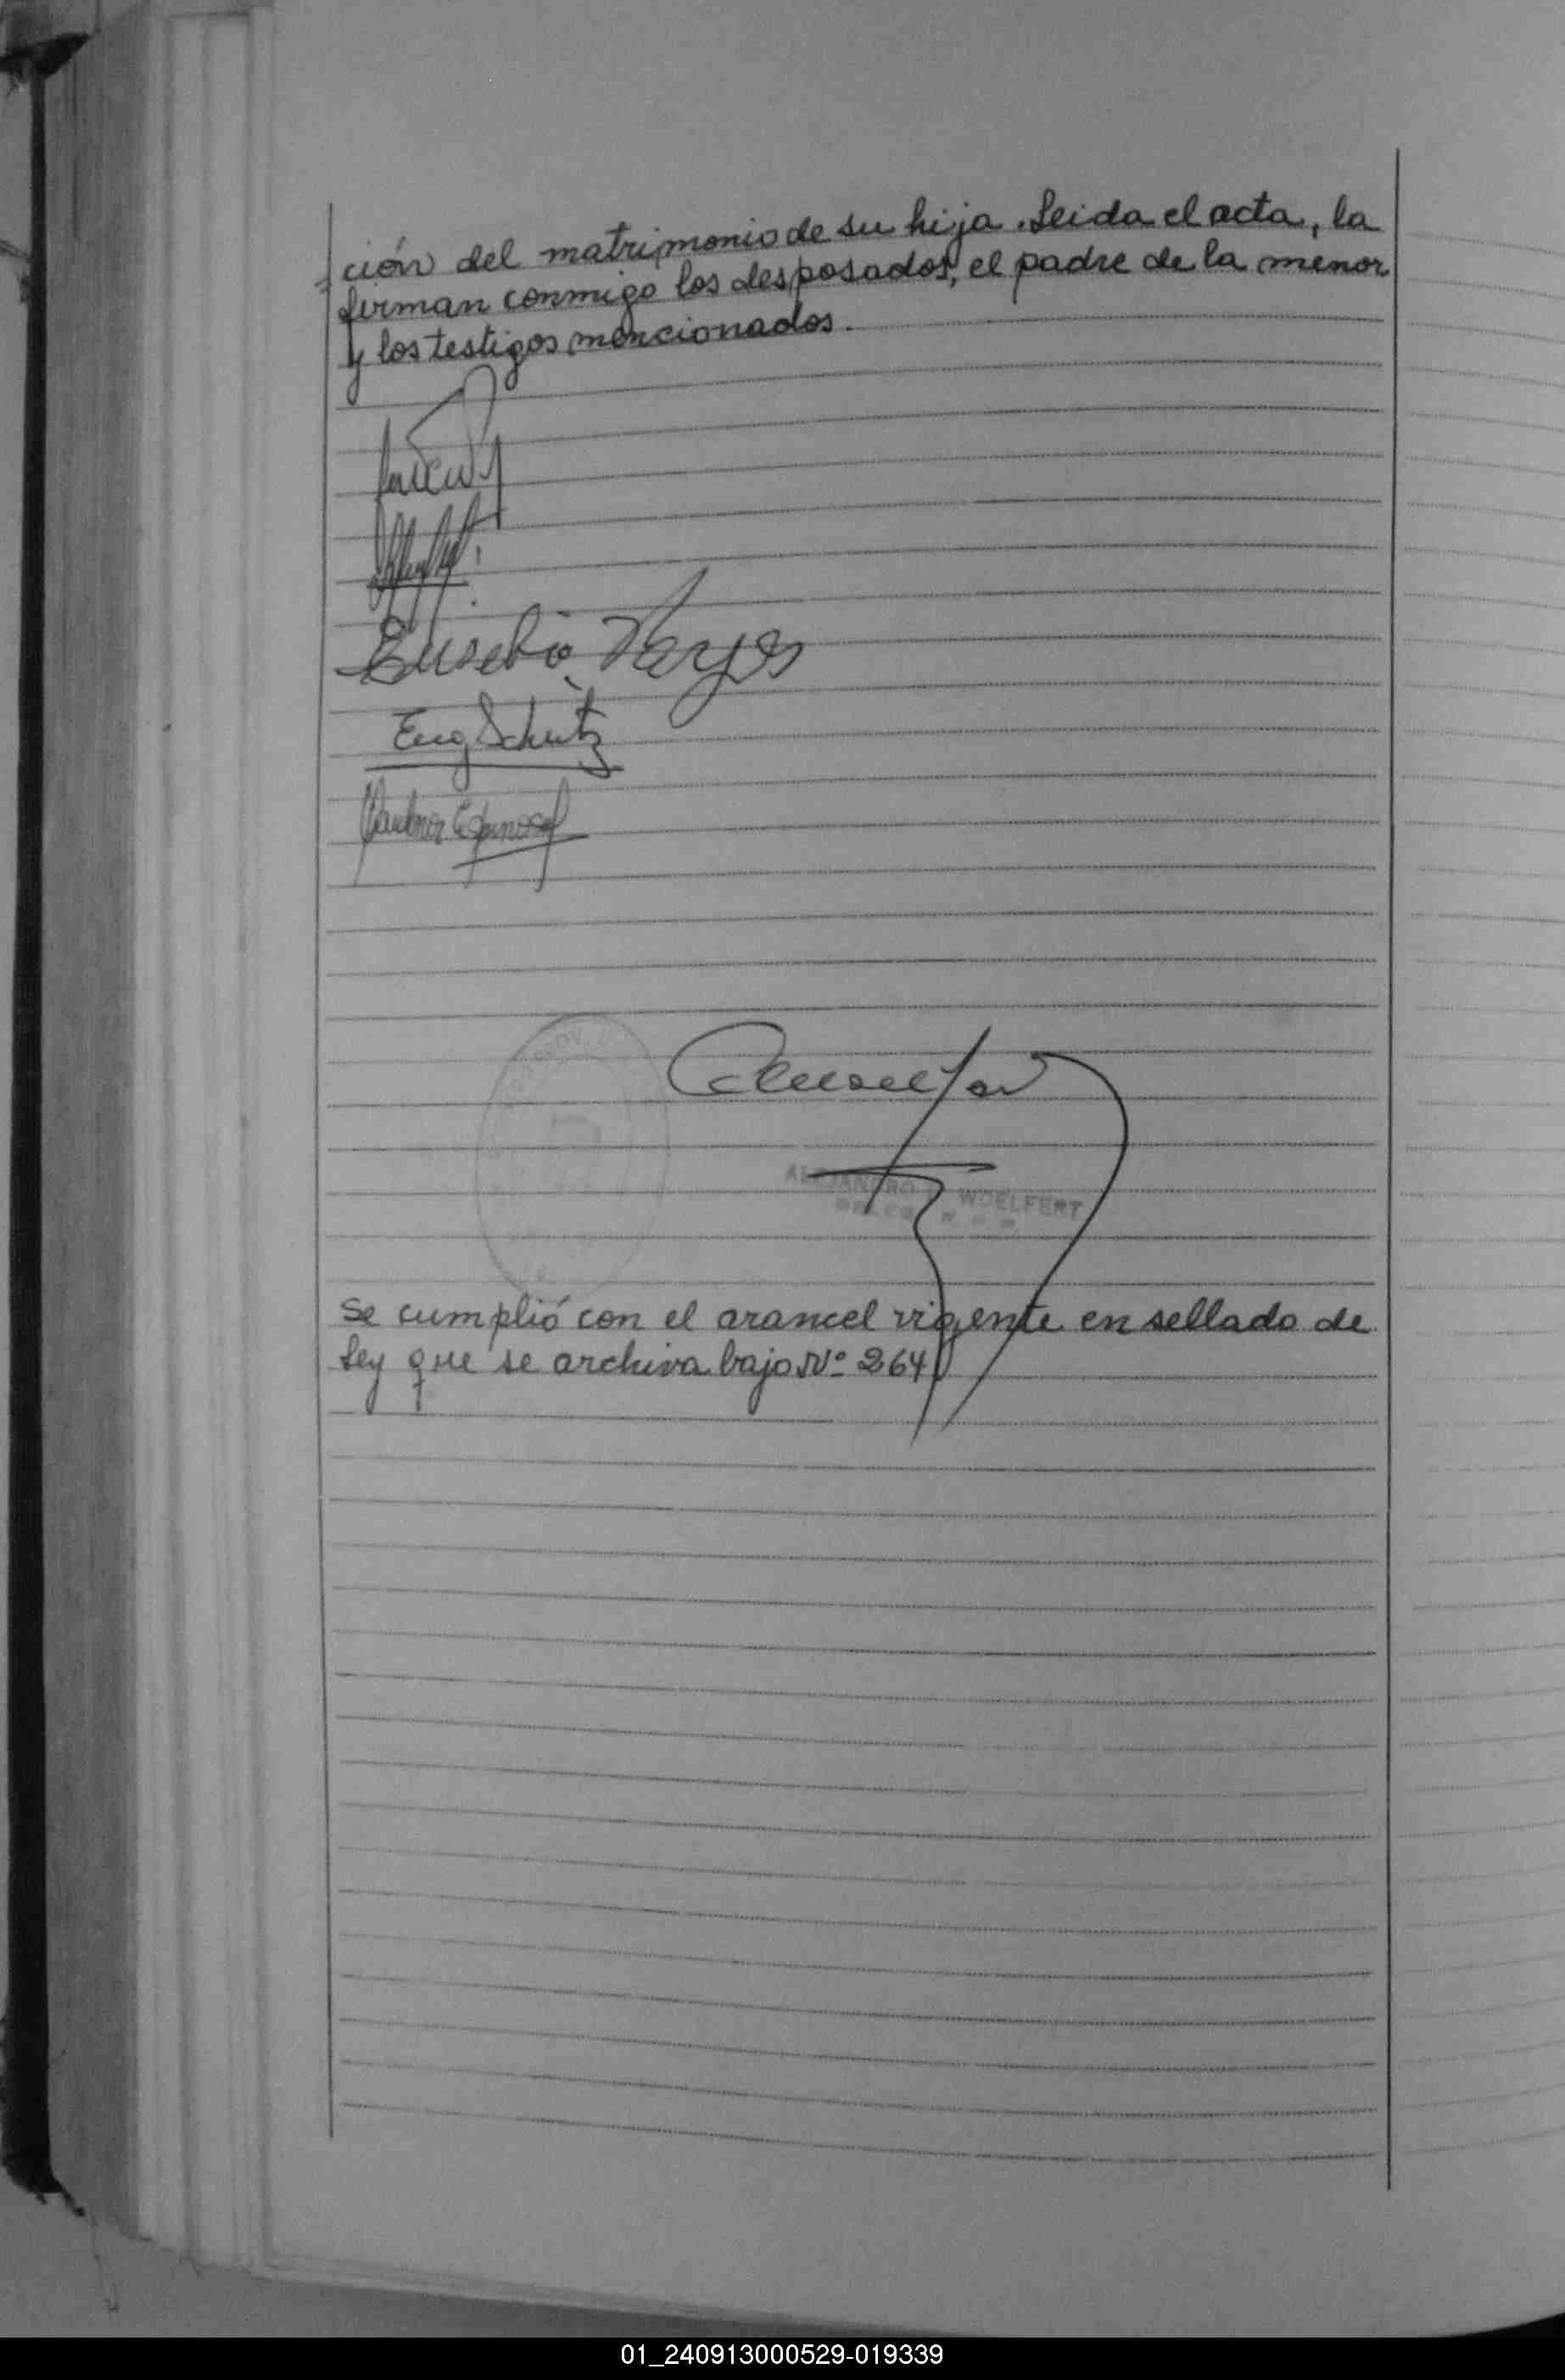 ción del matrimonio de su hija. Leida el acta, la
firman conmigo los desposados, el padre de la menor
y los testigos mencionados.
Eusebio
Eug Schutz
Espinosa
PROV.
ALEJANDRO WOELFERT
Se cumplió con el arancel vigente en sellado de
Ley que se archiva bajo Nº 264
01_240913000529-019339